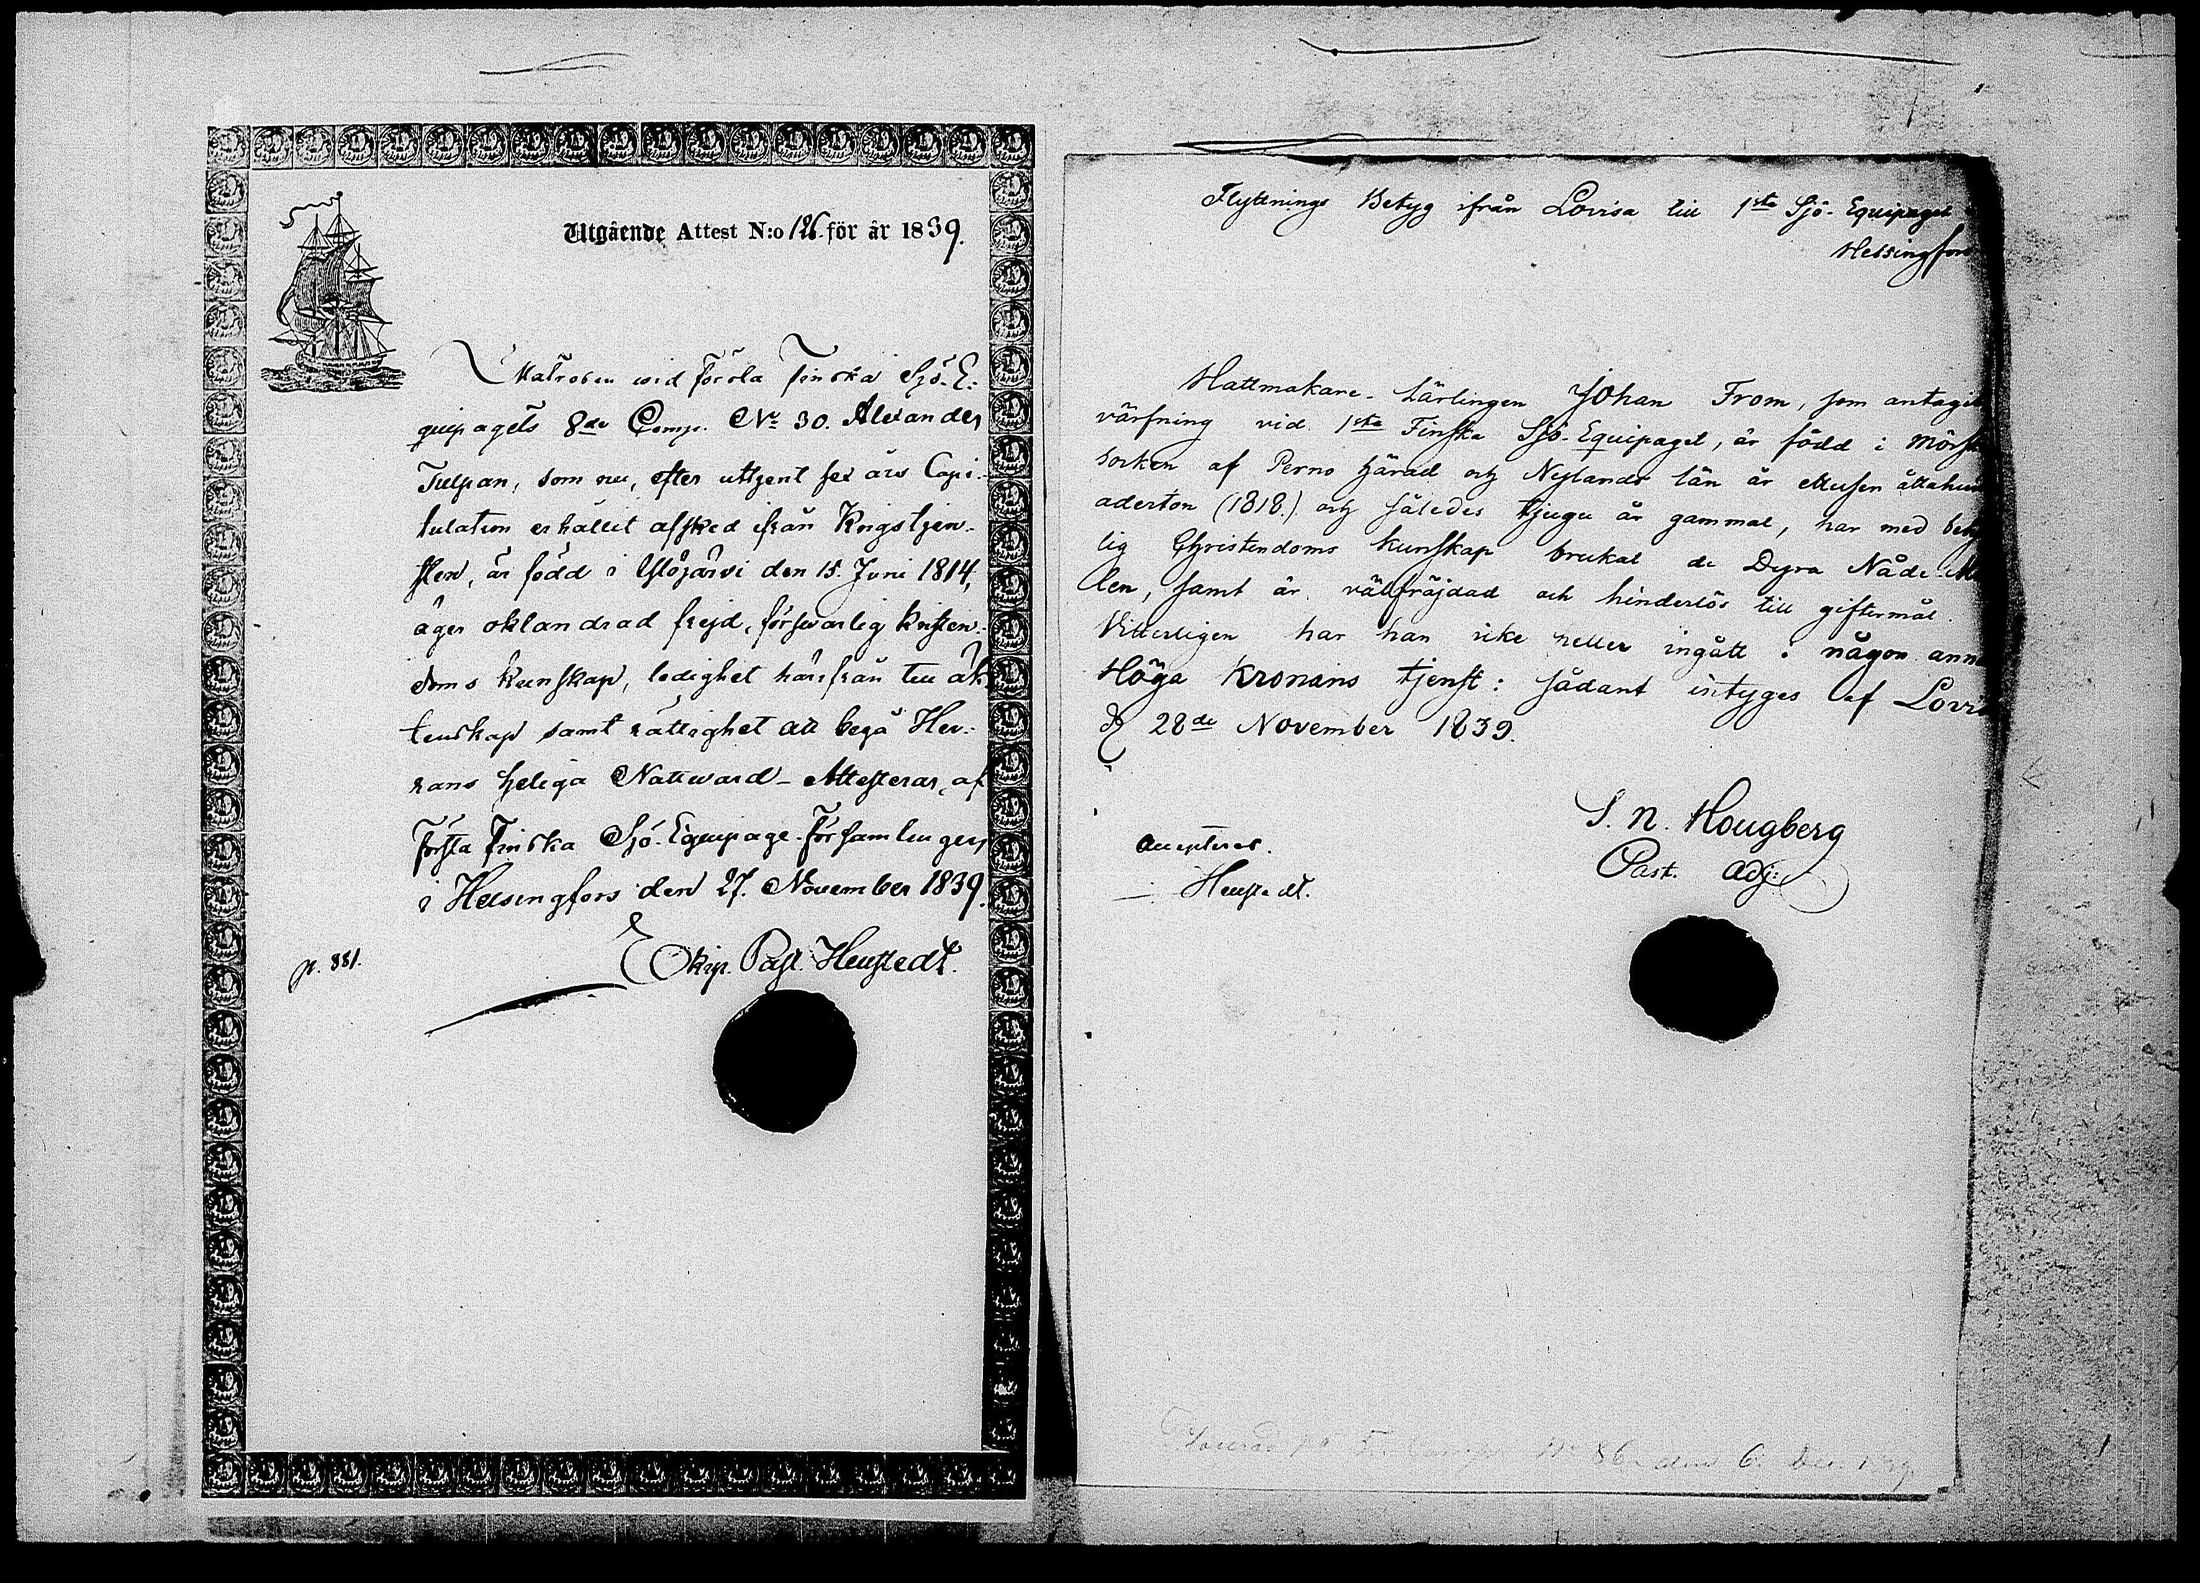 Utgående Attest N:o 126. för år 1839.
Matrosen wid Första Finska Sjö-E-
quipagets 8de Comp. No 30. Alexander
Tulpan, som nu, efter uttjent sex års Capi-
tulation erhållit afsked ifrån Krigstjen-
sten, är född i Ylöjärvi den 15. Juni 1814,
äger oklandrad frejd, försvarlig kristen-
doms kunskap, ledighet härifrån till äk-
tenskap samt rättighet att begå Her-
rans heliga Nattward - Attesterar, af
Första Finska Sjö-Equipage-Församlingen,
i Helsingfors den 27. November 1839.
p. 331.
Ekip. Past. Heustedt.
Flyttnings Betyg ifrån Lovisa till 1sta Sjö-Equipaget
Helsingfors
Hattmakare-Lärlingen Johan From, som antagit
värfning vid 1sta Finska Sjö-Equipaget, är född i Mörsk
Socken af Perno härad och Nylands län år ettusen åttahun
aderton (1818.) och således tjugu år gammal, har med behö
lig Christendoms kunskap brukat de Dyra Nåde-Me
len, samt är välfräjdad och hinderlös till giftermål.
Vitterligen har han icke heller ingått i någon anna
Höga Kronans tjenst: sådant intyges af Lovis
d 28de November 1839.
S. N. Hougberg
Past. Adj:
Accepteras.
Heustedt.
No 86 den 6.